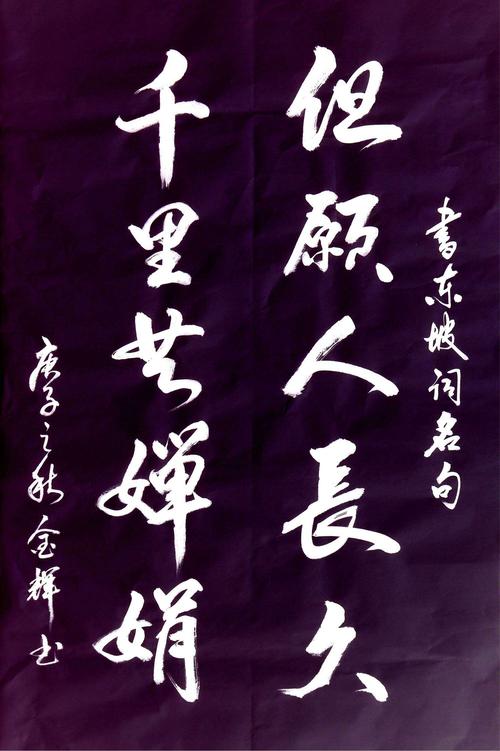 书东坡词名句
但愿人長久
千里共婵娟
庚子之秋金辉书